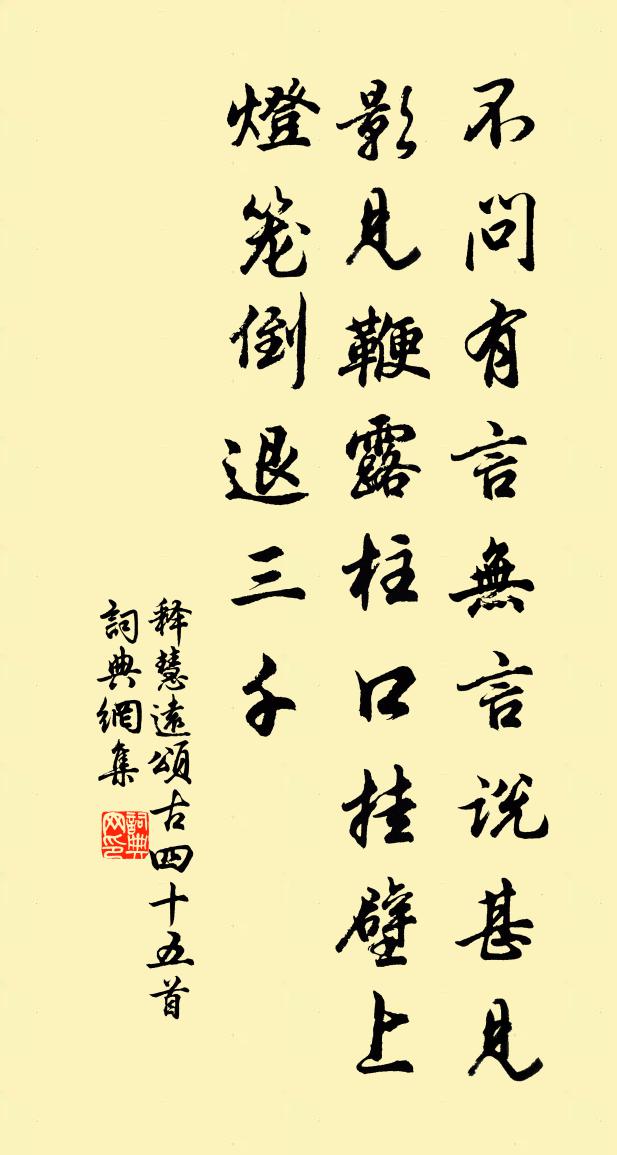 不問有言無言說甚見
影見鞭露柱口挂壁上
燈笼倒退三千
释慧遠頌古四十五首
詞典網集
詞典网印